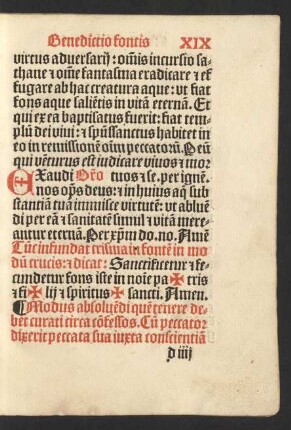 Benedictio fontis XIX
virtus aduersarij: om̄is incursio sa-
thane ⁊ om̄e fantasma eradicare ⁊ ef
fugare ab hac creatura aque: vt fiat
fons aque saliētis in vitā eternā. Et
qui ex ea baptisatus fuerit: fiat tem-
plū dei viui: ⁊ sp̄ussanctus habitet in
eo in remissionē om̄i peccatorū. P eū
qui vēturus est iudicare viuos ⁊ mor
EXaudi Or̄o tuos ⁊ se. per ignē.
nos op̄s deus: ⁊ in huius aq̄ sub
stantiā tuā immisce virtutē: vt ablue̅
di per eā ⁊ sanitatē simul ⁊ vitā mere-
antur eternā. Per xp̄m do. no. Amē
Tūc infundat crisma in fontē in mo
dū crucis: ⁊ dicat: Sanctificetur ⁊ fe-
cundetur fons iste in noīe pa✠tris
⁊ fi✠lij ⁊ spiritus✠sancti. Amen.
¶Modus absoluēdi quē tenere de-
bet curati circa cōfessos. Cū peccator
dixerit peccata sua iuxta conscientiā
d iiij